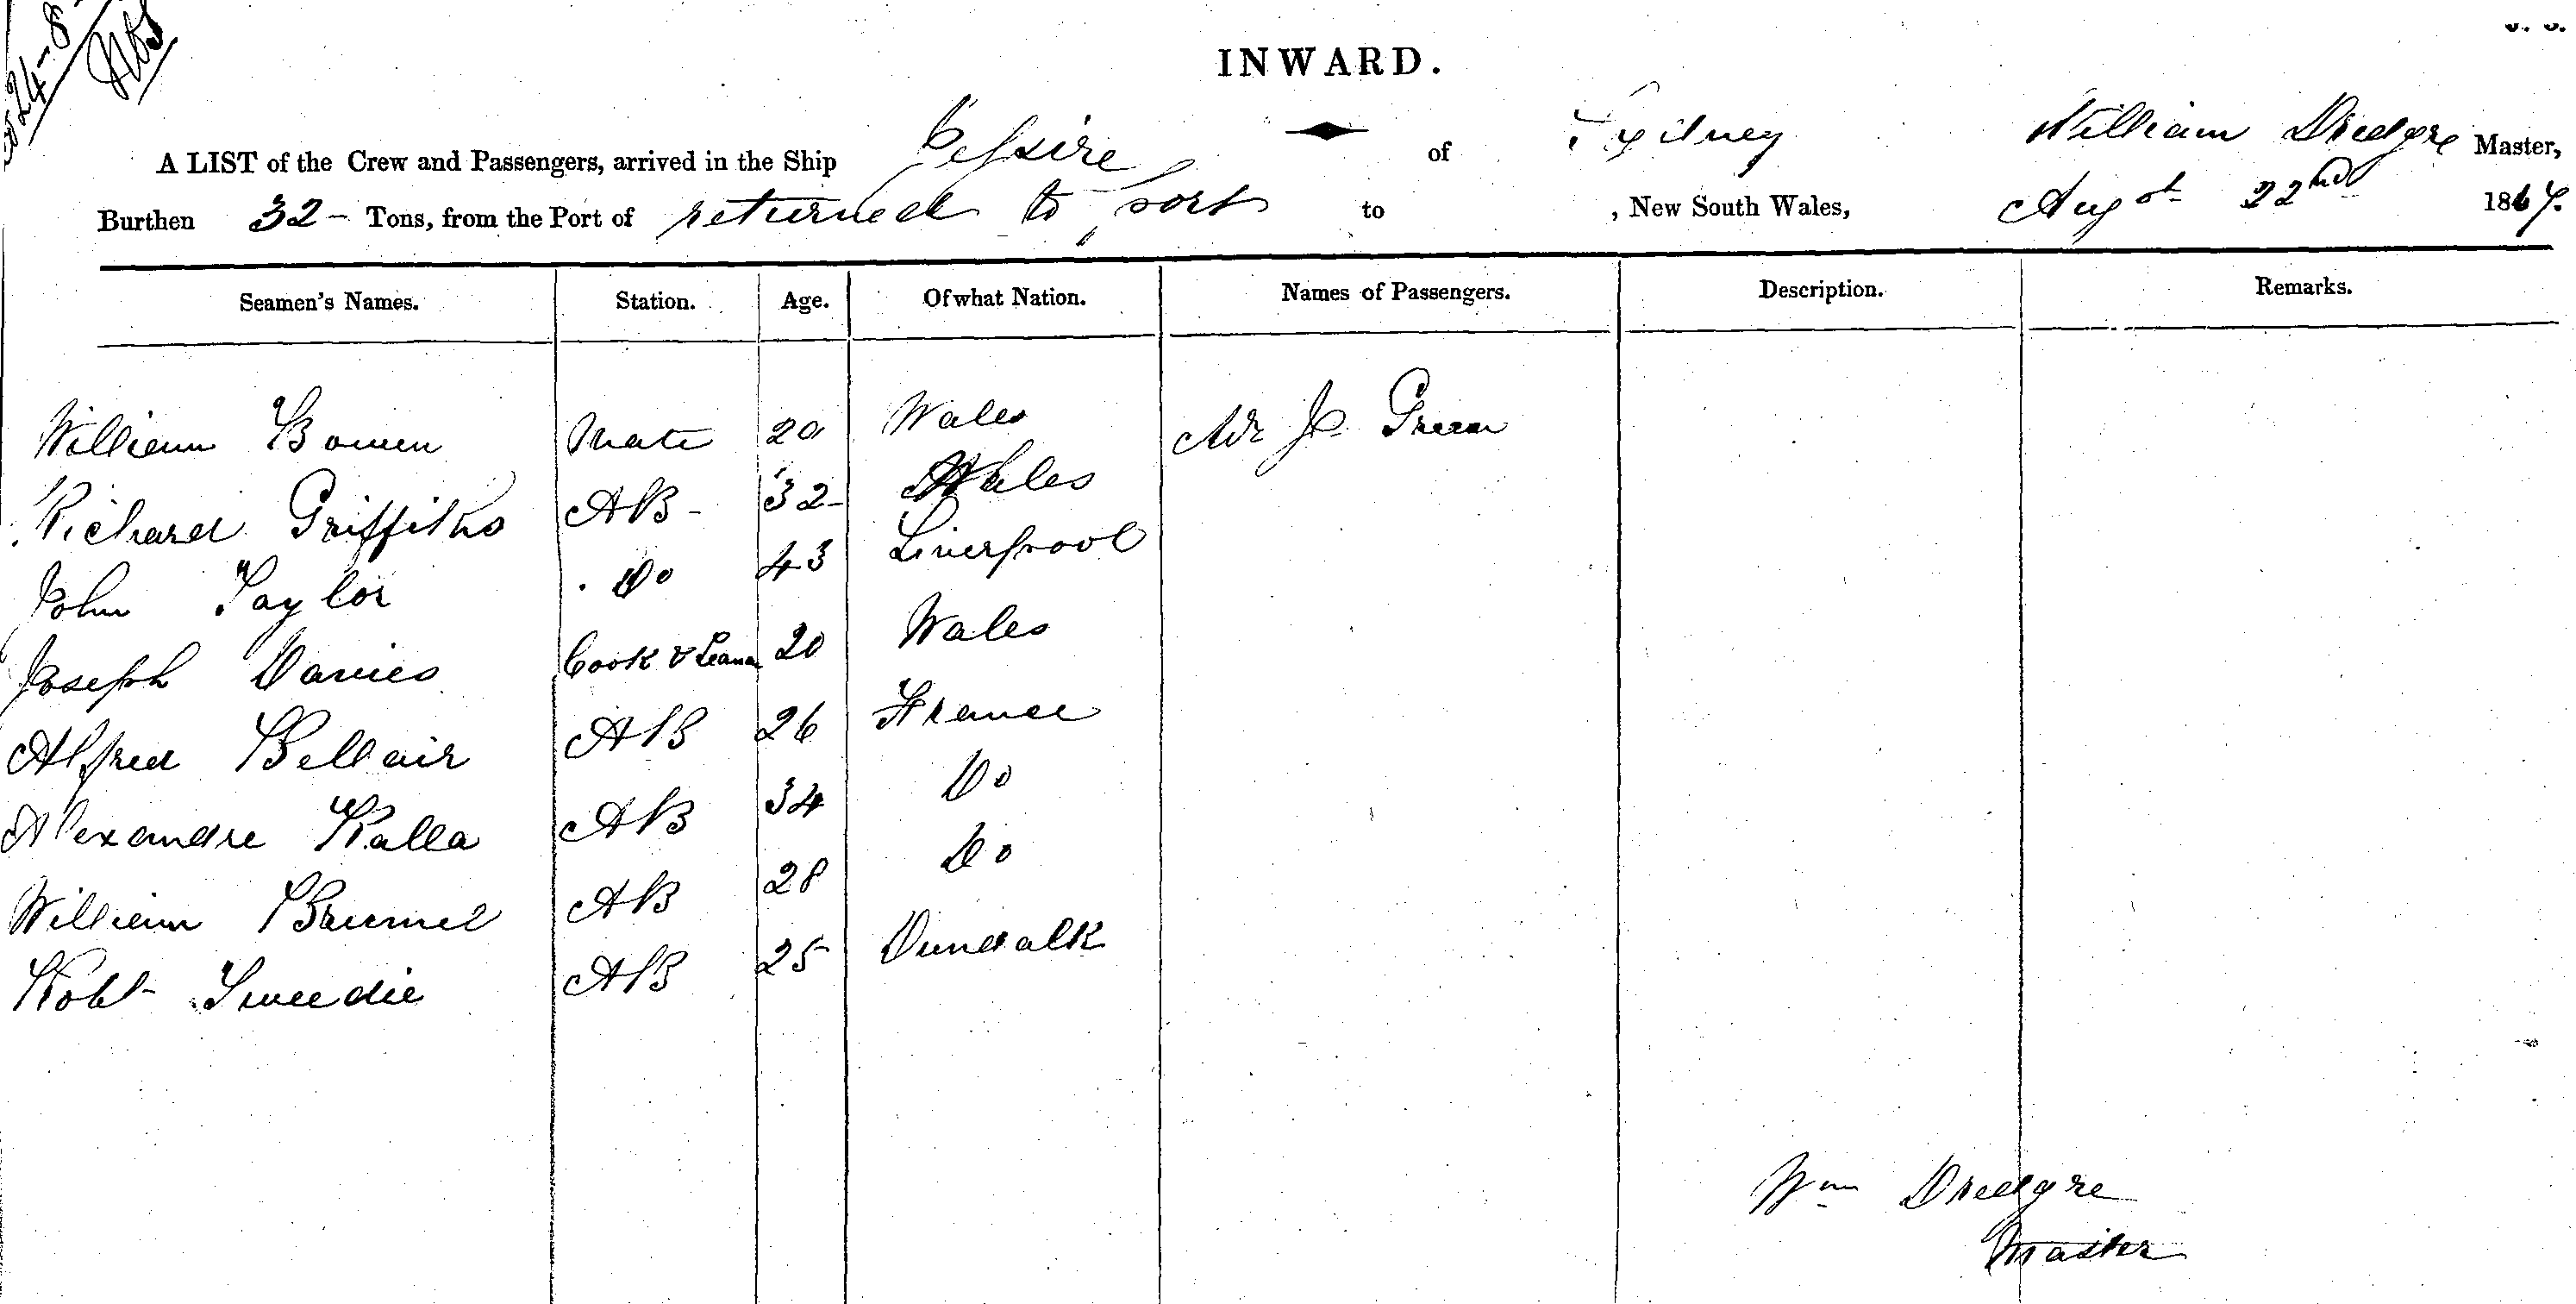 24-8
INWARD.
A LIST of the Crew and Passengers, arrived in the Ship of Sydney William Dredgre Master,
Burthen 32- Tons, from the Port of returned to port to , New South Wales, Augst 22nd 1867.
Seamen's Names. Station. Age. Of what Nation. Names of Passengers. Description. Remarks.
William Bowen Mate 20 Wales Mr Js Green
Richard Griffiths AB- 32- Wales
John Taylor Do 43 Liverpool
Joseph Davies Cook & 20 Wales
Alfred Bellair AB 26 France
Alexandre Kalla AB 34 Do
William AB 28 Do
Robt Tweedie AB 25 Dundalk
Wm Dredgre
Master